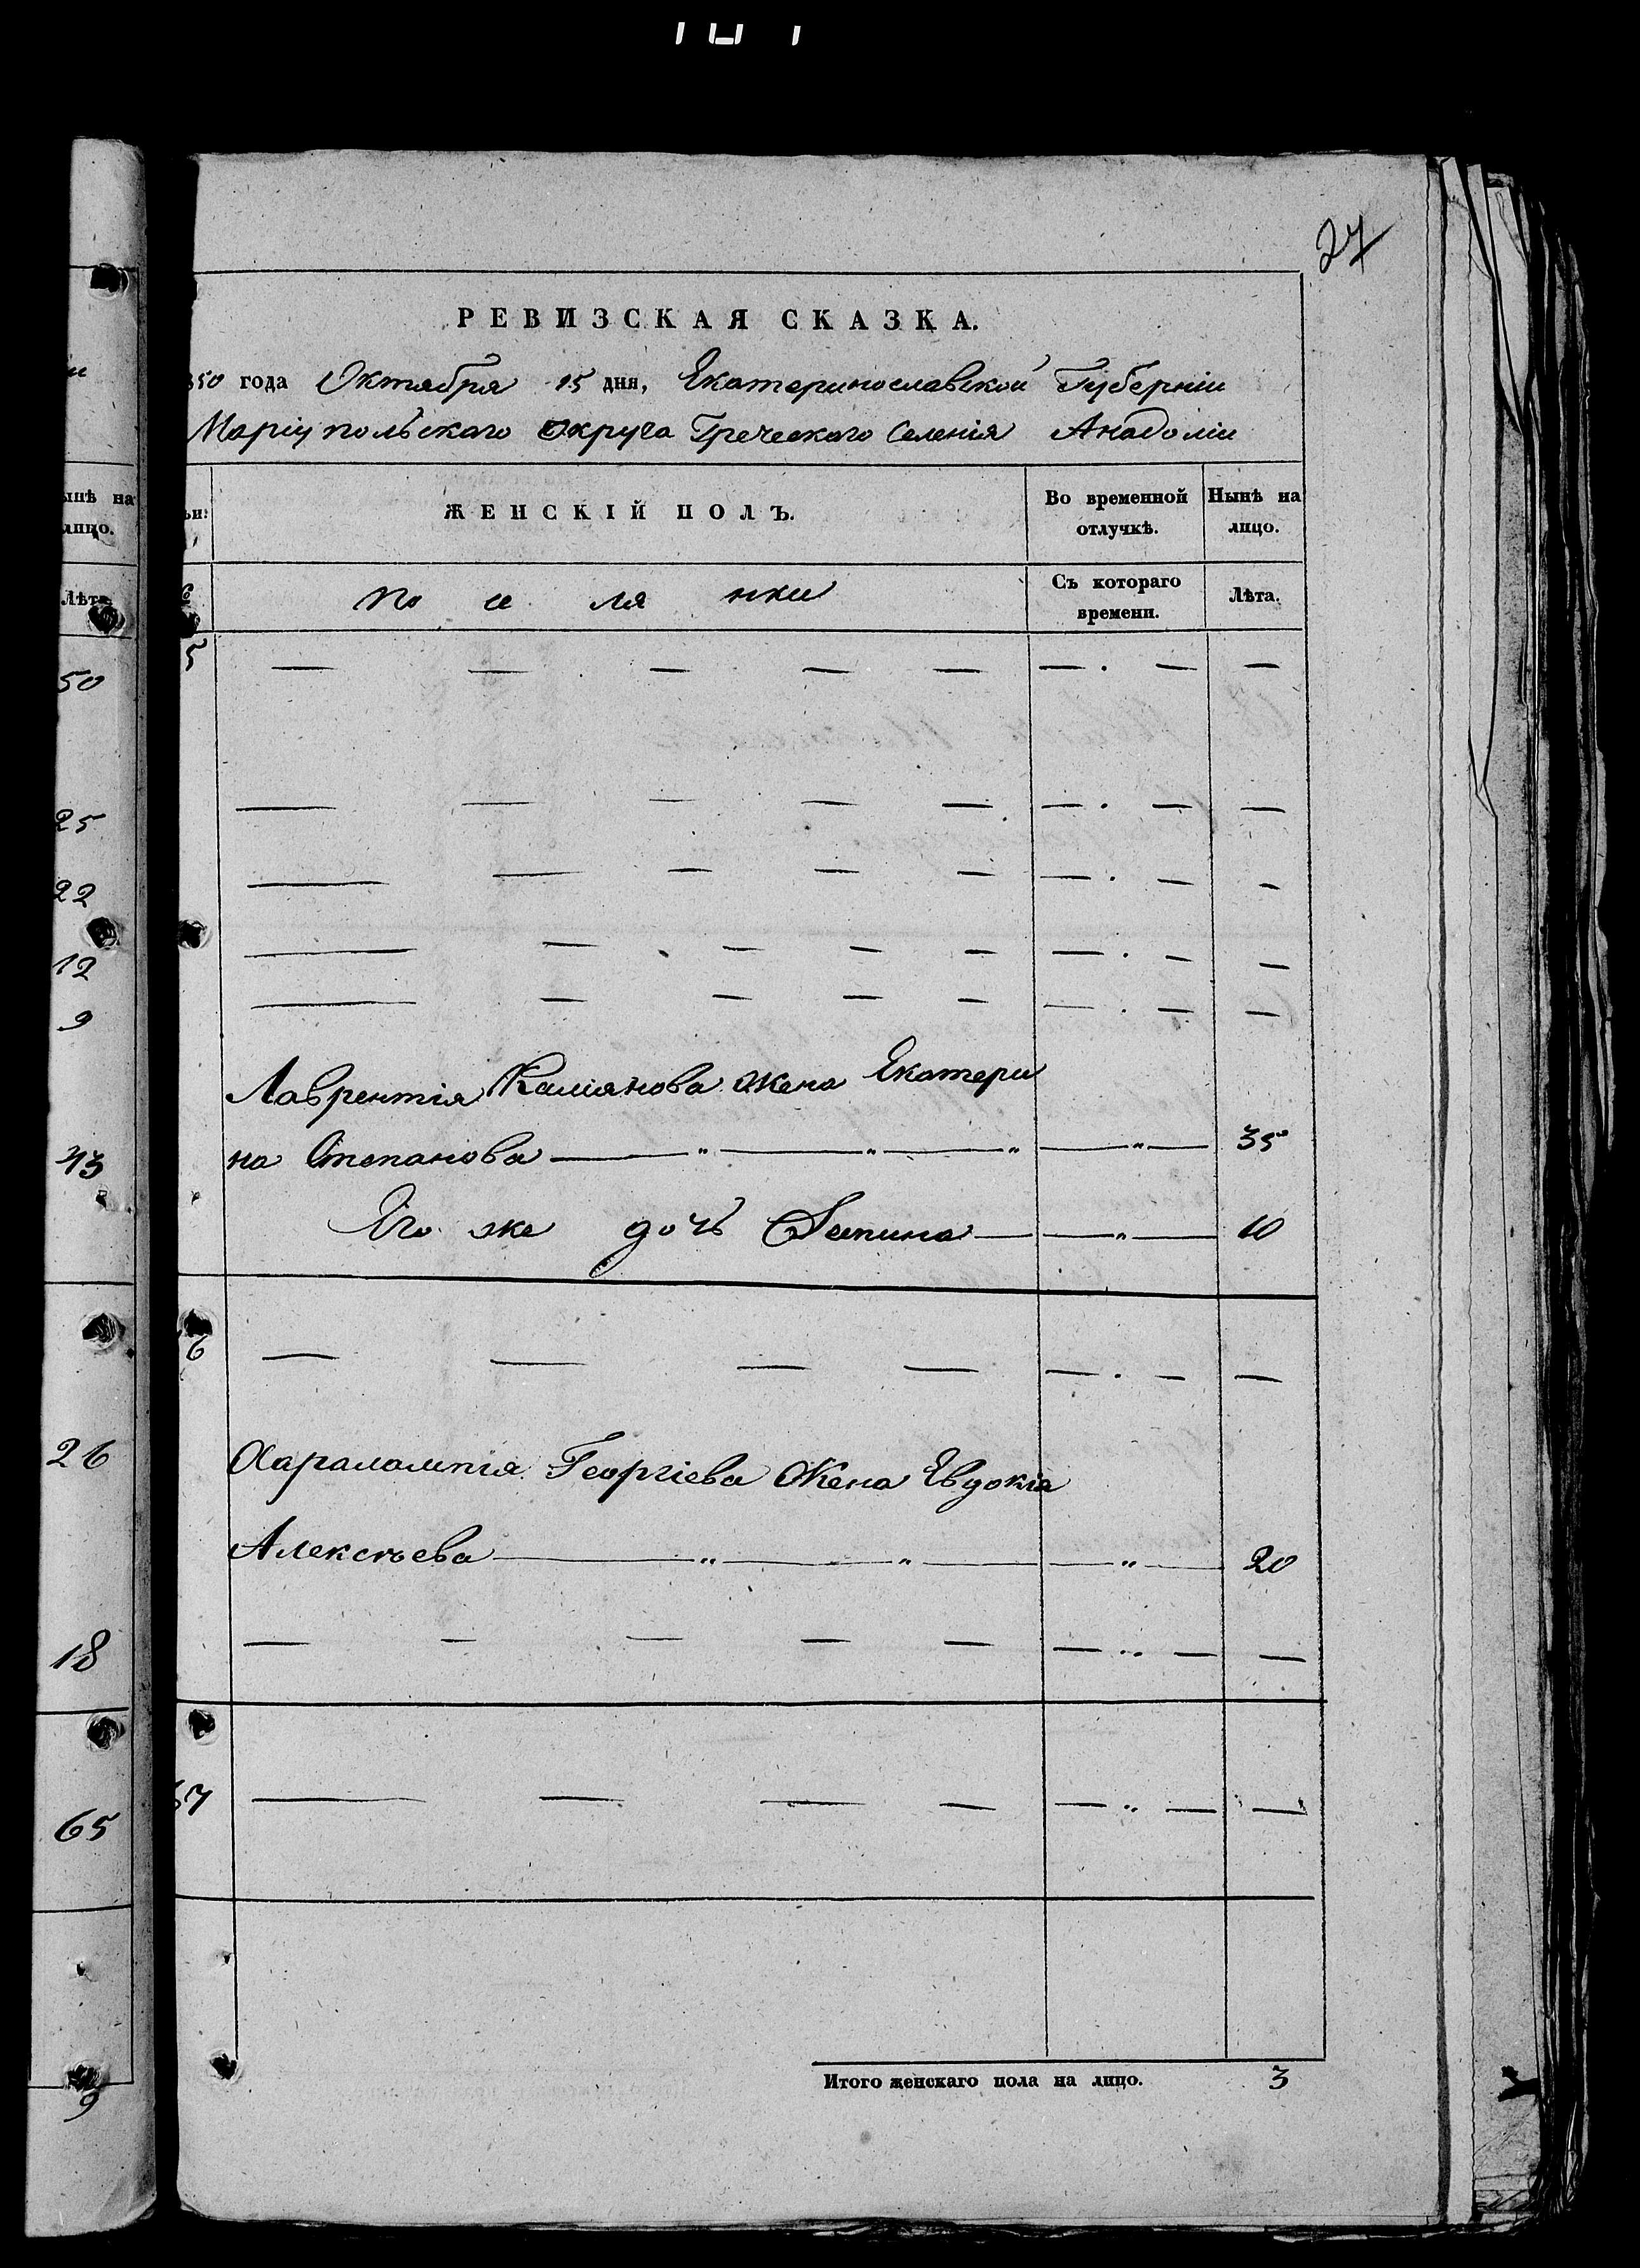 27
РЕВИЗСКАЯ СКАЗКА.
850 года Октября 15 дня, Екатеринославской Губерніи
Маріупольскаго Округа Греческаго Селенія Анадоліи
ынѣ на
лицо.
ьи:
ЖЕНСКІЙ ПОЛЪ.
Во временной
отлучкѣ.
Нынѣ на
лицо.
Лѣта.
Поселянки
Съ котораго
времени.
Лѣта.
5
50
25
22
12
9
Лаврентія жена Екатери
43
на Степанова 35
Его же дочь 10
6
26
Харалампія Георгіева Жена Евдокія
Алексѣева 20
18
67
65
Итого женскаго пола на лицо. 3
9